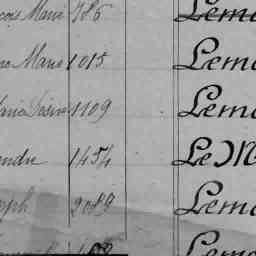 çois Marie 786 Lema
Marie 1015 Lema
Marie Désiré 1109 Lema
andre 1454 Le M
seph 2089 Lema
Lema